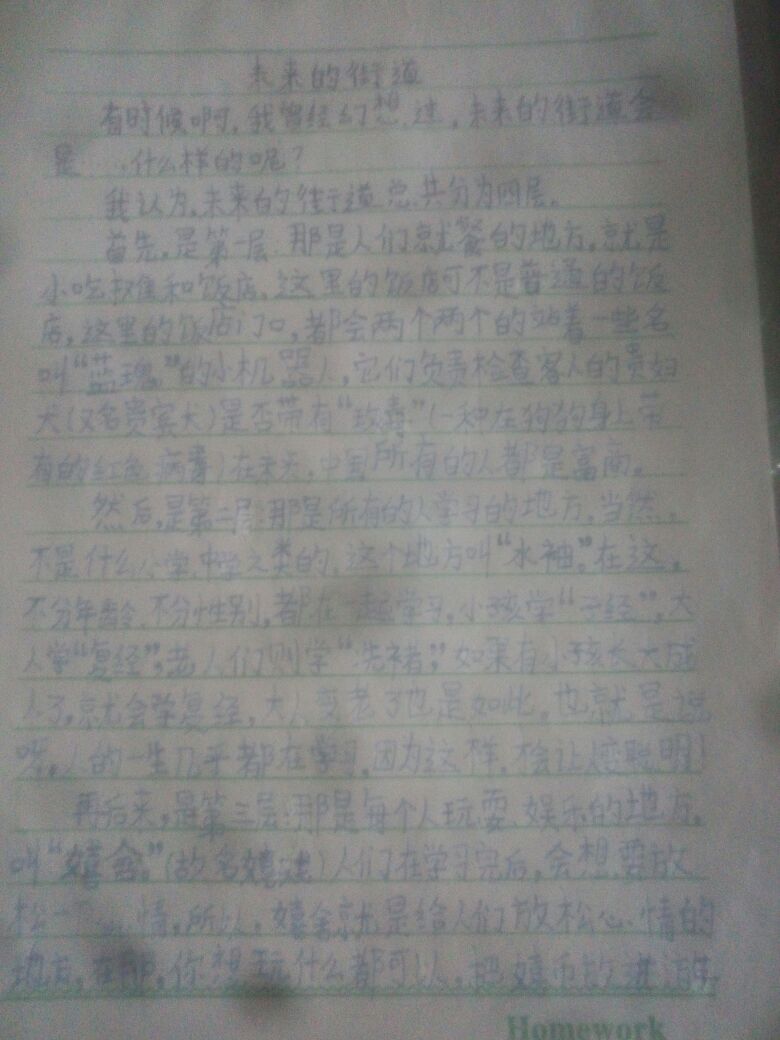 未来的街道
有时候啊,我曾经幻想过,未来的街道会
是 什么样的呢?
我认为,未来的街道总共分为四层。
首先,是第一层,那是人们就餐的地方,就是
小吃摊和饭店,这里的饭店可不是普通的饭
店,这里的饭店门口,都会两个两个的站着一些名
叫“蓝瑰”的小机器人,它们负责检查客人的贵妇
犬(又名贵宾犬)是否带有“玫毒”(一种在狗狗身上带
有的红色病毒)在未来,中国所有的人都是富商。
然后,是第二层:那是所有的人学习的地方,当然,
不是什么小学、中学之类的,这个地方叫“水袖”。在这,
不分年龄、不分性别,都在一起学习,小孩学“子经”,大
人学“复经”,老人们则学“洗褚”,如果有小孩长大成
人了,就会学复经,大人变老了也是如此,也就是说
呀,人的一生几乎都在学习,因为这样,会让 聪明!
再后来,是第三层:那是每个人玩耍、娱乐的地方,
叫“嬉舍”。(故名嬉 )人们在学习完后,会想要放
松一 心情,所以,嬉舍就是给人们放松心情的
地方,在那,你想玩什么都可以,把嬉币放进
Homework